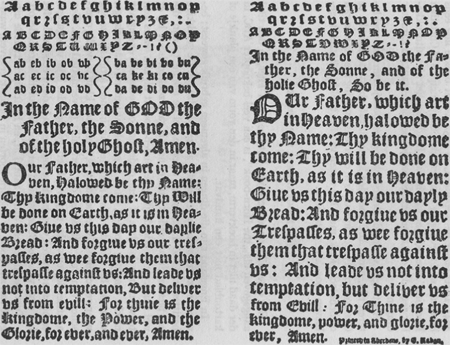 Aabcdefghiklmnop
qrſstuvwxyzꝛ&,:.
ABCDEFGHIKLMNOP
QRSTUWXYZ--!()
ab eb ib ob ub
ac ec ic oc uc
ad ed id od ud
ba be bi bo bu
ca ke ki co cu
da de di do du
In the Name of GOD the
Father, the Sonne, and
of the holy Ghoſt, Amen.
Our Father, which art in Hea-
ven, Halowed be thy Name:
Thy Kingdome come: Thy Will
be done on Earth, as it is in Hea-
ven: Giue vs this day our daylie
Bread: And forgiue vs our treſ-
paſſes, as wee forgiue them that
treſpaſſe againſt vs: And leade vs
not into temptation, But deliver
vs from evill: For thine is the
kingdome, the Power, and the
Glorie, for ever, and ever, Amen.
Aabcdefghiklmnop
qrſstuvwxyzꝛ&,:.
ABCDEFGHIKLMNOP
QRSTUWXYZ--!()
In the Name of GOD the Fa-
ther, the Sonne, and of the
holie Ghoſt, So be it.
OUr Father, which art
in Heaven, halowed be
thy Name: Thy kingdome
come: Thy will be done on
Earth, as it is in Heaven:
Giue vs this day our dayly
Bread: And forgiue vs our
Treſpaſſes, as wee forgiue
them that treſpaſſe againſt
vs: And leade vs not into
temptation, but deliver vs
from Evill: For Thine is the
kingdome, power, and glorie, for
ever, Amen. Printed in Aberdene, by E. Raban.